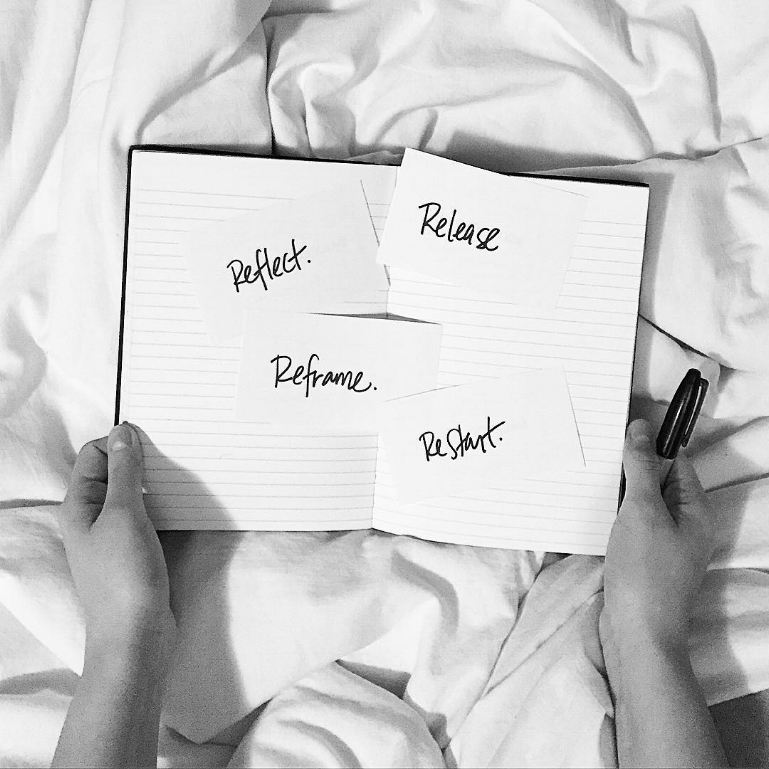 Reflect.
Release
Reframe.
ReStart.